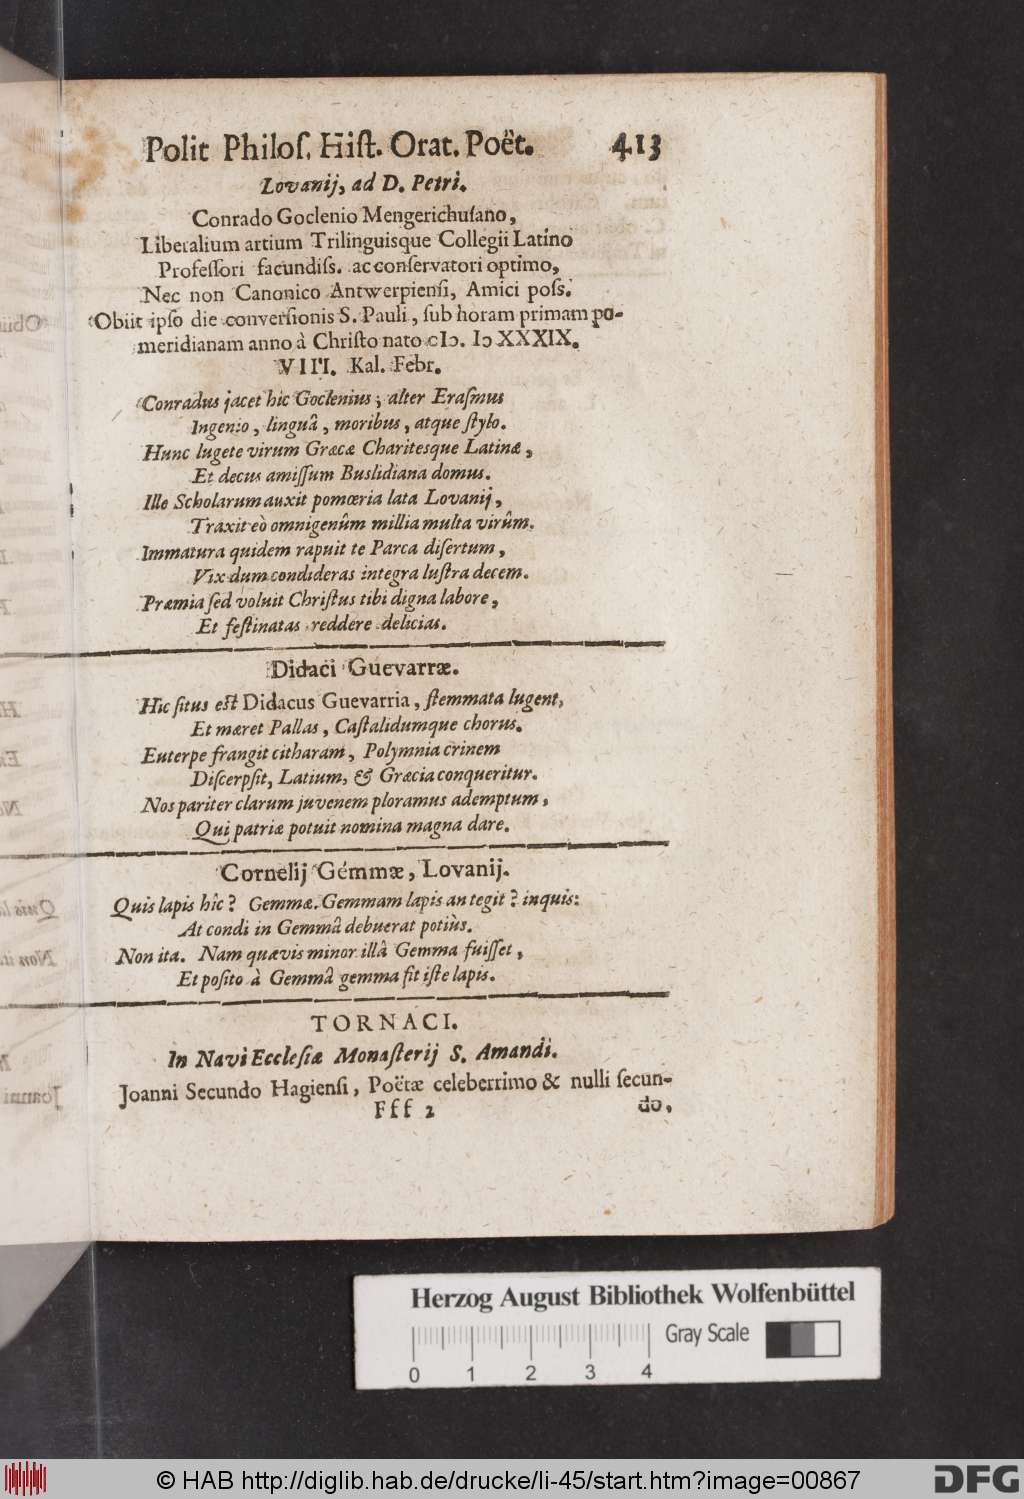 Polit Philoſ. Hiſt. Orat. Poët. 413
Lovanij, ad D. Petri.
Conrado Goclenio Mengerichuſano,
Liberalium artium Trilinguisque Collegii Latino
Profeſſori facundiſs. ac conſervatori optimo,
Nec non Canonico Antwerpienſi, Amici poſs.
Obiit ipſo die converſionis S. Pauli, ſub horam primam po-
meridianam anno à Chriſto nato cIɔ. Iɔ XXXIX.
VIII. Kal. Febr.
Conradus jacet hic Goclenius; alter Eraſmus
Ingenio, linguâ, moribus, atque ſtylo.
Hunc lugete virum Græcæ Charitesque Latinæ,
Et decus amiſſum Buslidiana domus.
Ille Scholarum auxit pomœria lata Lovanij,
Traxit eò omnigenûm millia multa virûm.
Immatura quidem rapuit te Parca diſertum,
Vix dum condideras integra luſtra decem.
Præmia ſed voluit Chriſtus tibi digna labore,
Et feſtinatas reddere delicias.
Didaci Guevarræ.
Hic ſitus eſt Didacus Guevarria, ſtemmata lugent,
Et mæret Pallas, Caſtalidumque chorus.
Euterpe frangit citharam, Polymnia crinem
Diſcerpſit, Latium, & Græcia conqueritur.
Nos pariter clarum juvenem ploramus ademptum,
Qui patriæ potuit nomina magna dare.
Cornelij Gémmæ, Lovanij.
Quis lapis hîc? Gemmæ. Gemmam lapis an tegit? inquis:
At condi in Gemmâ debuerat potiùs.
Non ita. Nam quævis minor illâ Gemma fuiſſet,
Et poſito à Gemmâ gemma fit iſte lapis.
TORNACI.
In Navi Eccleſiæ Monaſterij S. Amandi.
Joanni Secundo Hagienſi, Poëtæ celeberrimo & nulli ſecun-
Fff 2 do,
Herzog August Bibliothek Wolfenbüttel
Gray Scale
0 1 2 3 4
© HAB http://diglib.hab.de/drucke/li-45/start.htm?image=00867
DFG